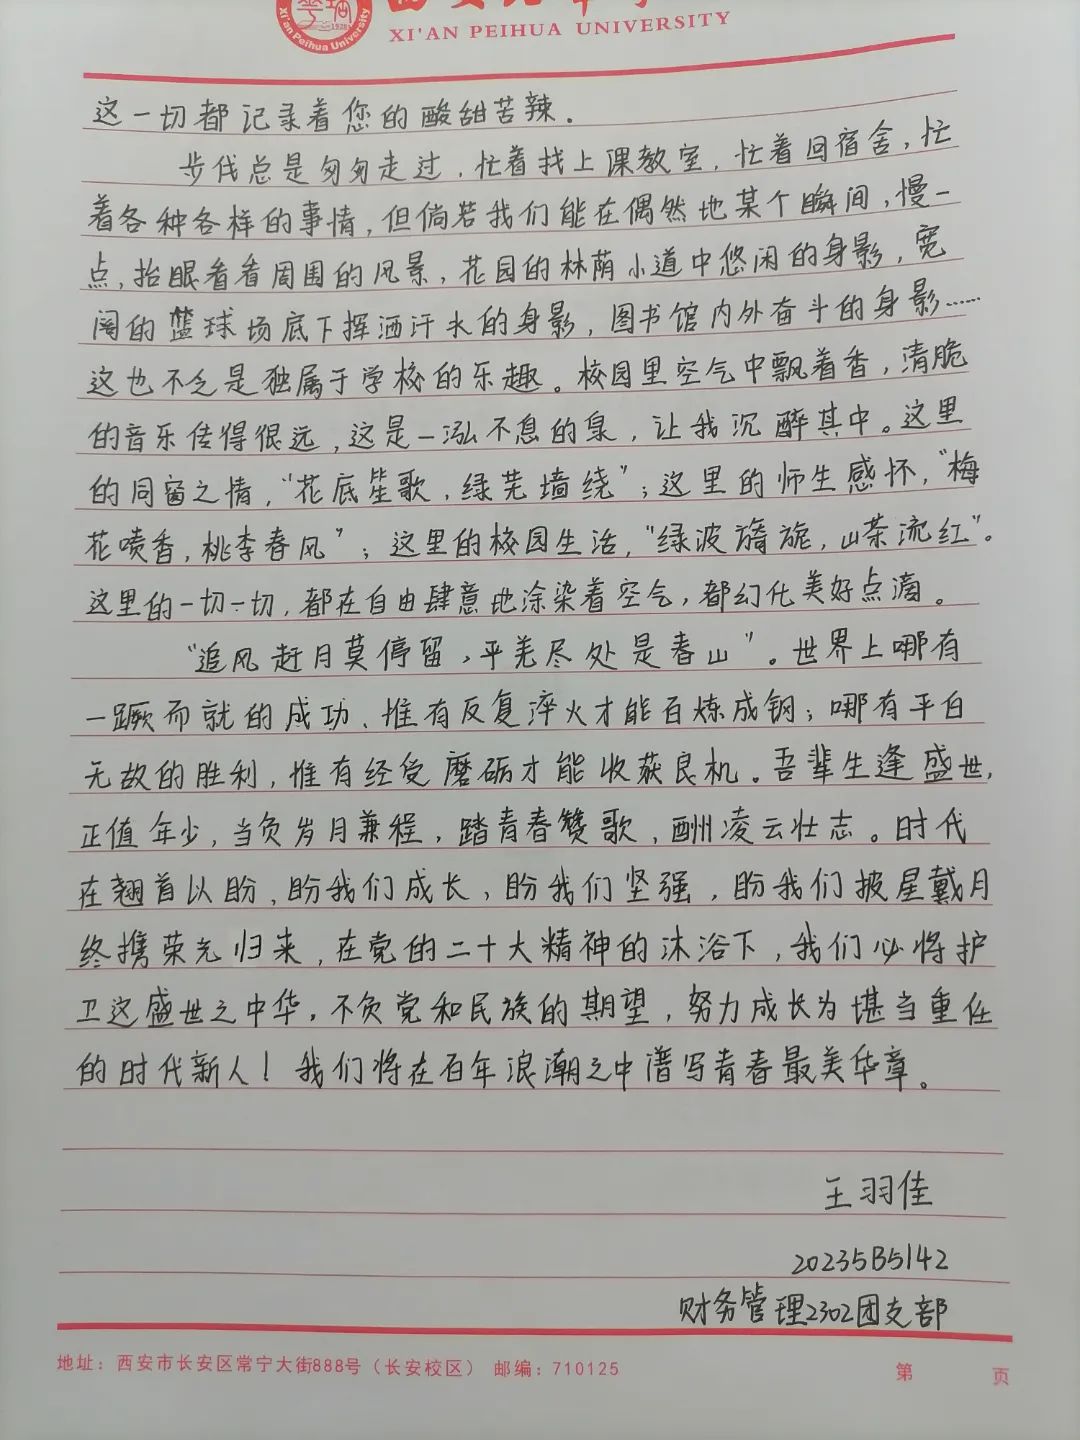 XI'AN PEIHUA UNIVERSITY
Xi'an Peihua University
1928
这一切都记录着您的酸甜苦辣.
步伐总是匆匆走过,忙着找上课教室,忙着回宿舍,忙
着各种各样的事情,但倘若我们能在偶然地某个瞬间,慢一
点,抬眼看看周围的风景,花园的林荫小道中悠闲的身影,宽
阔的篮球场底下挥洒汗水的身影,图书馆内外奋斗的身影……
这也不乏是独属于学校的乐趣。校园里空气中飘着香,清脆
的音乐传得很远,这是一泓不息的泉,让我沉醉其中。这里
的同窗之情,“花底笙歌,绿芜墙绕”;这里的师生感怀,“梅
花喷香,桃李春风”;这里的校园生活,“绿波旖旎,山茶流红”。
这里的一切一切,都在自由肆意地涂染着空气,都幻化美好点滴。
“追风赶月莫停留,平羌尽处是春山”。世界上哪有
一蹶而就的成功、惟有反复淬火才能百炼成钢;哪有平白
无故的胜利,惟有经受磨砺才能收获良机。吾辈生逢盛世,
正值年少,当负岁月兼程,踏青春赞歌,酬凌云壮志。时代
在翘首以盼,盼我们成长、盼我们坚强,盼我们披星戴月
终携荣光归来,在党的二十大精神的沐浴下,我们必将护
卫这盛世之中华,不负党和民族的期望,努力成长为堪当重任
的时代新人!我们将在百年浪潮之中谱写青春最美华章。
王羽佳
20235B5142
财务管理2302团支部
地址:西安市长安区常宁大街888号(长安校区) 邮编:710125
第 页